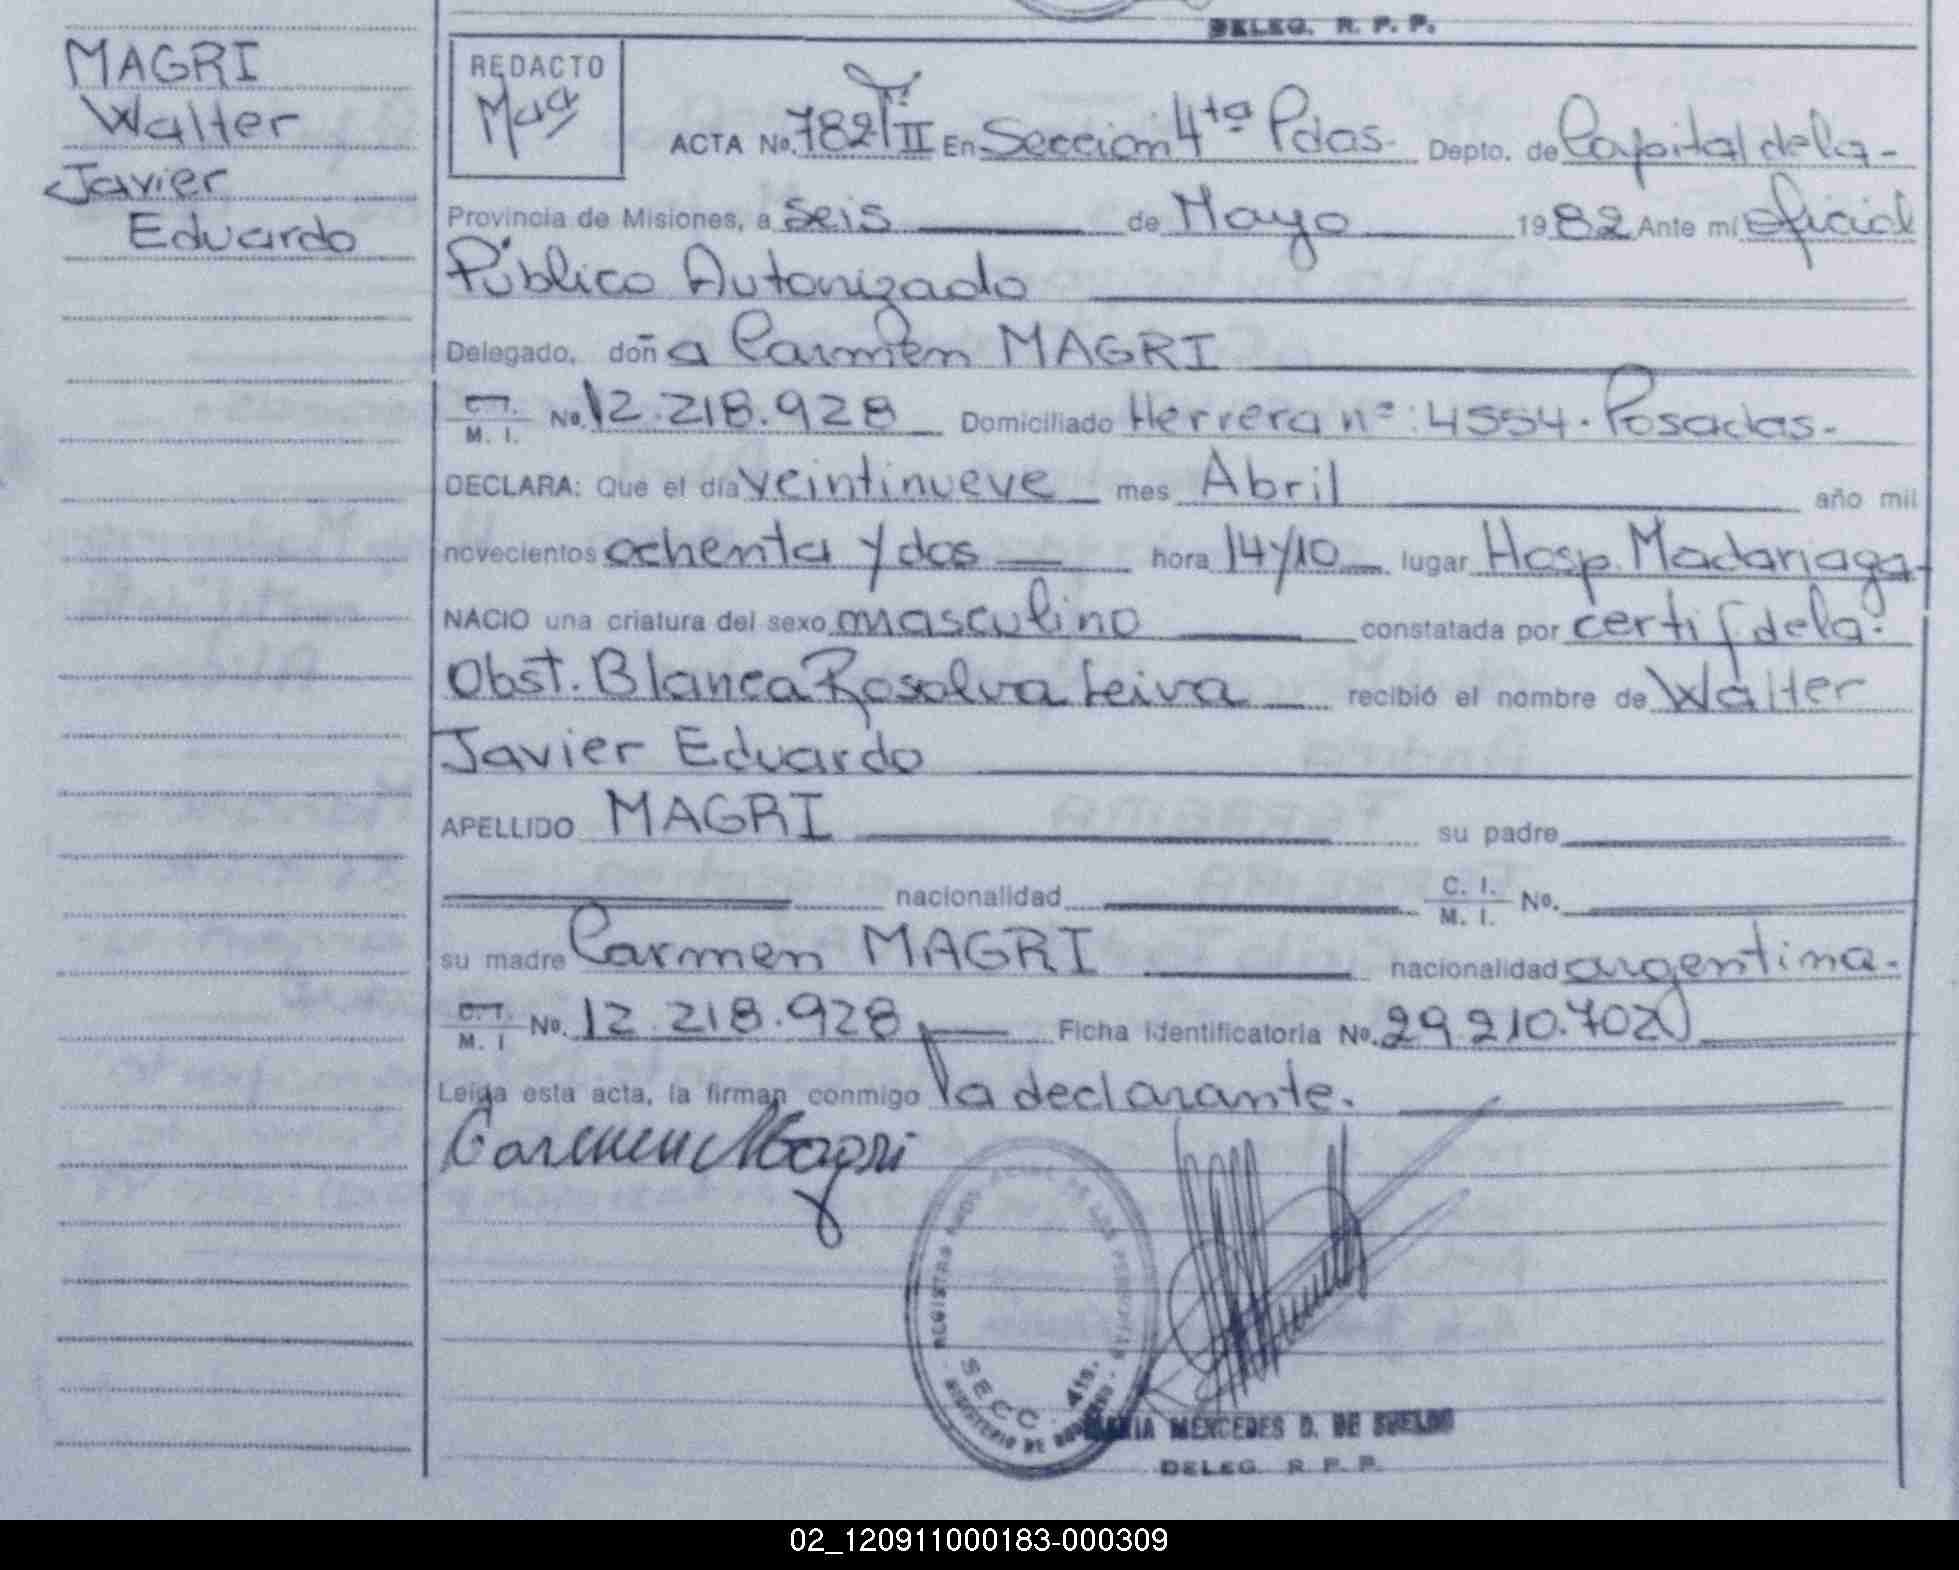 DELEG. R. P. P.
MAGRI
Walter
Javier
Eduardo
REDACTO
ACTA No. 782 T II En Sección 4ta Pdas. Depto. de Capital de la-
Provincia de Misiones, a seis de Mayo 1982 Ante mí oficial
Público Autorizado
Delegado, doña Carmen MAGRI
C. I. M. I. No. 12.218.928 Domiciliado Herrera nº: 4554. Posadas.
DECLARA: Que el día veintinueve mes Abril año mil
novecientos ochenta y dos hora 14 y 10 lugar Hosp. Madariaga-
NACIO una criatura del sexo masculino constatada por certif de la:
Obst. Blanca Rosalva Leiva recibió el nombre de Walter
Javier Eduardo
APELLIDO MAGRI su padre
nacionalidad C. I. M. I. No.
su madre Carmen MAGRI nacionalidad argentina.
C. I. M. I No. 12.218.928 Ficha Identificatoria No. 29.210.702
Leída esta acta, la firman conmigo la declarante.
Carmen Magri
SECC. 4ta.
MARIA MERCEDES D. DE
DELEG. R. P. P.
02_120911000183-000309